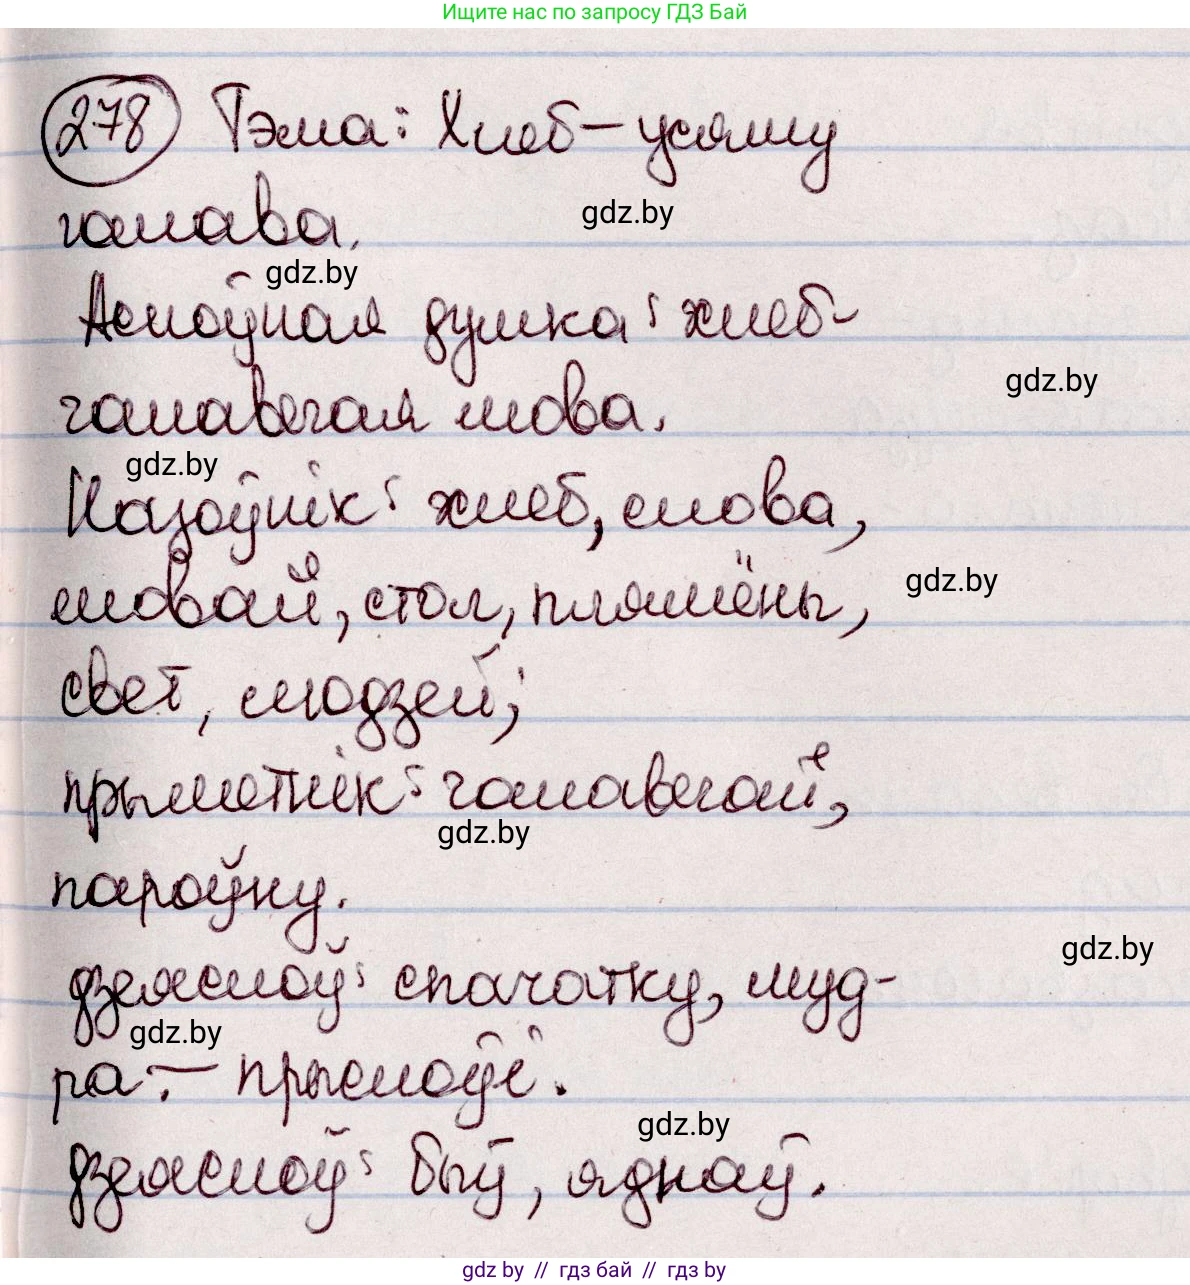 Ищите нас по запросу ГДЗ Бай
278 Тэма: Хлеб – усяму
галава.
gdz.by
gdz.by
Асноўная думка: хлеб –
галавегая мова.
gdz.by
gdz.by
Назоўнік: хлеб, слова,
мовай, стол, плямёны,
gdz.by
свет, людзей;
прыметнік: галавегай,
gdz.by
пароўну.
gdz.by
дзеяслоў: спачатку, муд-
gdz.by
ра; – прыслоўі.
gdz.by
дзеяслоў: быў, яднаў.
gdz.by // гдз бай // гдз by